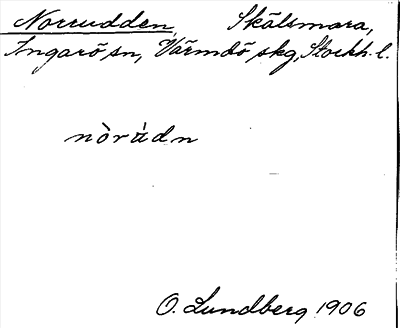 Norrudden, Skälsmara,
Ingarö sn, Värmdö skg, Stockh. l.
nòrúdn
O. Lundberg 1906